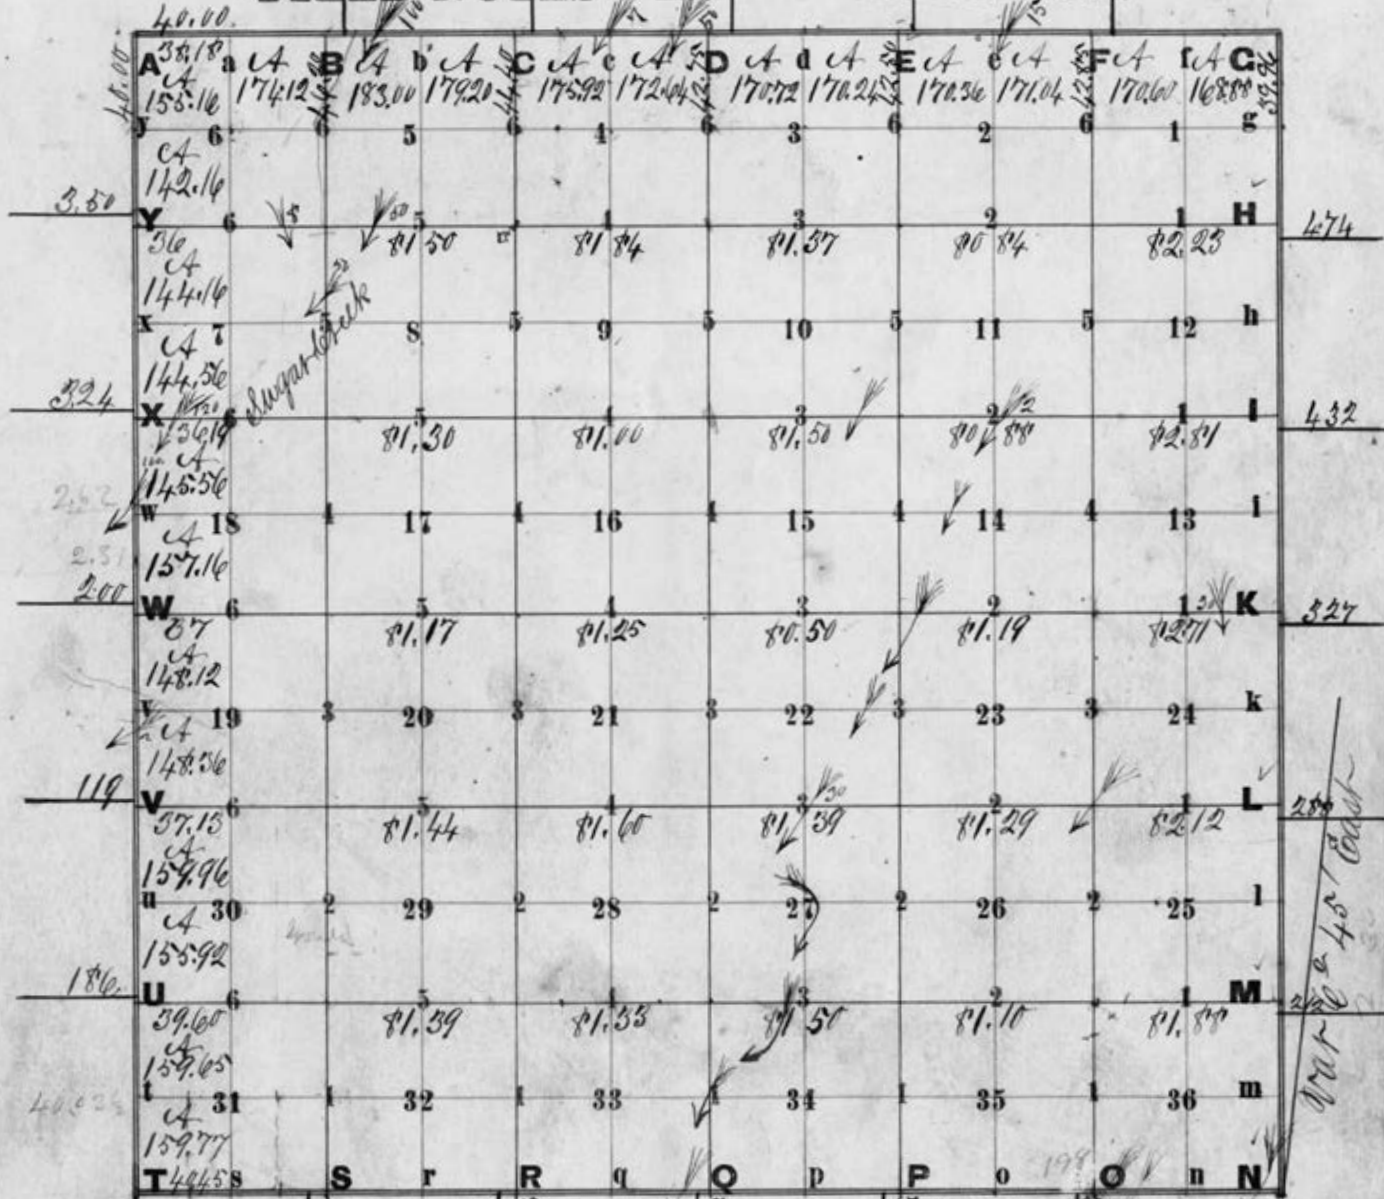 40.00.
48.00 A 38.18 a A B A b A C A c A D A d A E A e A F A f A G 39.96
A
155.16 174.12 183.00 179.20 175.92 172.64 170.72 170.24 170.36 171.04 170.60 168.88
y 6 6 5 6 4 6 3 6 2 6 1 g
A
142.16
3.50 Y 6 5 4 3 2 1 H 474
36 81 50 81 84 81.37 80 84 82.23
A
144.16
x 7 5 8 5 9 5 10 5 11 5 12 h
A
144.56
Sugar Creek
324 X 6 5 4 3 2 1 I 432
36.14 81,30 81.00 81,50 80 88 82.81
A
145.56
2.62
w 18 4 17 4 16 4 15 4 14 4 13 i
A
157.16
2.31
200 W 6 5 4 3 2 1 K 327
37 81.17 81.25 80.50 81.19 82.71
A
148.12
v 19 3 20 3 21 3 22 3 23 3 24 k
A
148.36
119 V 6 5 4 3 30 2 1 L
37.13 81.44 81.60 81.39 81.29 82.12
A
159.96
u 30 2 29 2 28 2 27 2 26 2 25 l
A
155.92
186. U 6 5 4 3 2 1 M
39.60 81.39 81.33 81.50 81.10 81.88
A
159.65
t 31 1 32 1 33 1 34 1 35 1 36 m
A
159.77
T 40.45 s S r R q Q p P o O n N
Var 6° 45' East